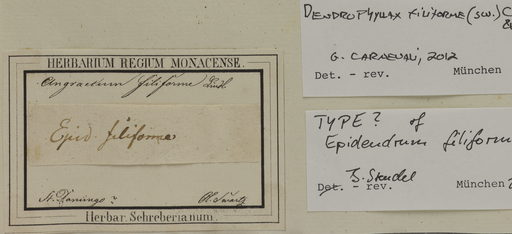 HERBARIUM REGIUM MONACENSE.
Angraecum filiforme Lindl.
Epid. filiforme
St. Domingo?
Ol. Swartz
Herbar. Schreberianum.
DENDROPHYLAX FILIFORME (SW.)
G. CARNEVALI, 2012
Det. - rev. München
TYPE? of
Epidendrum filiform
Det. - rev. München